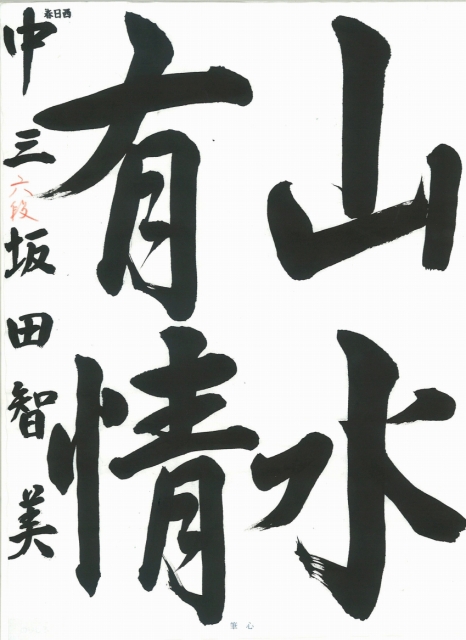 山水
有情
中三 六段 坂田智美
西日春
心筆